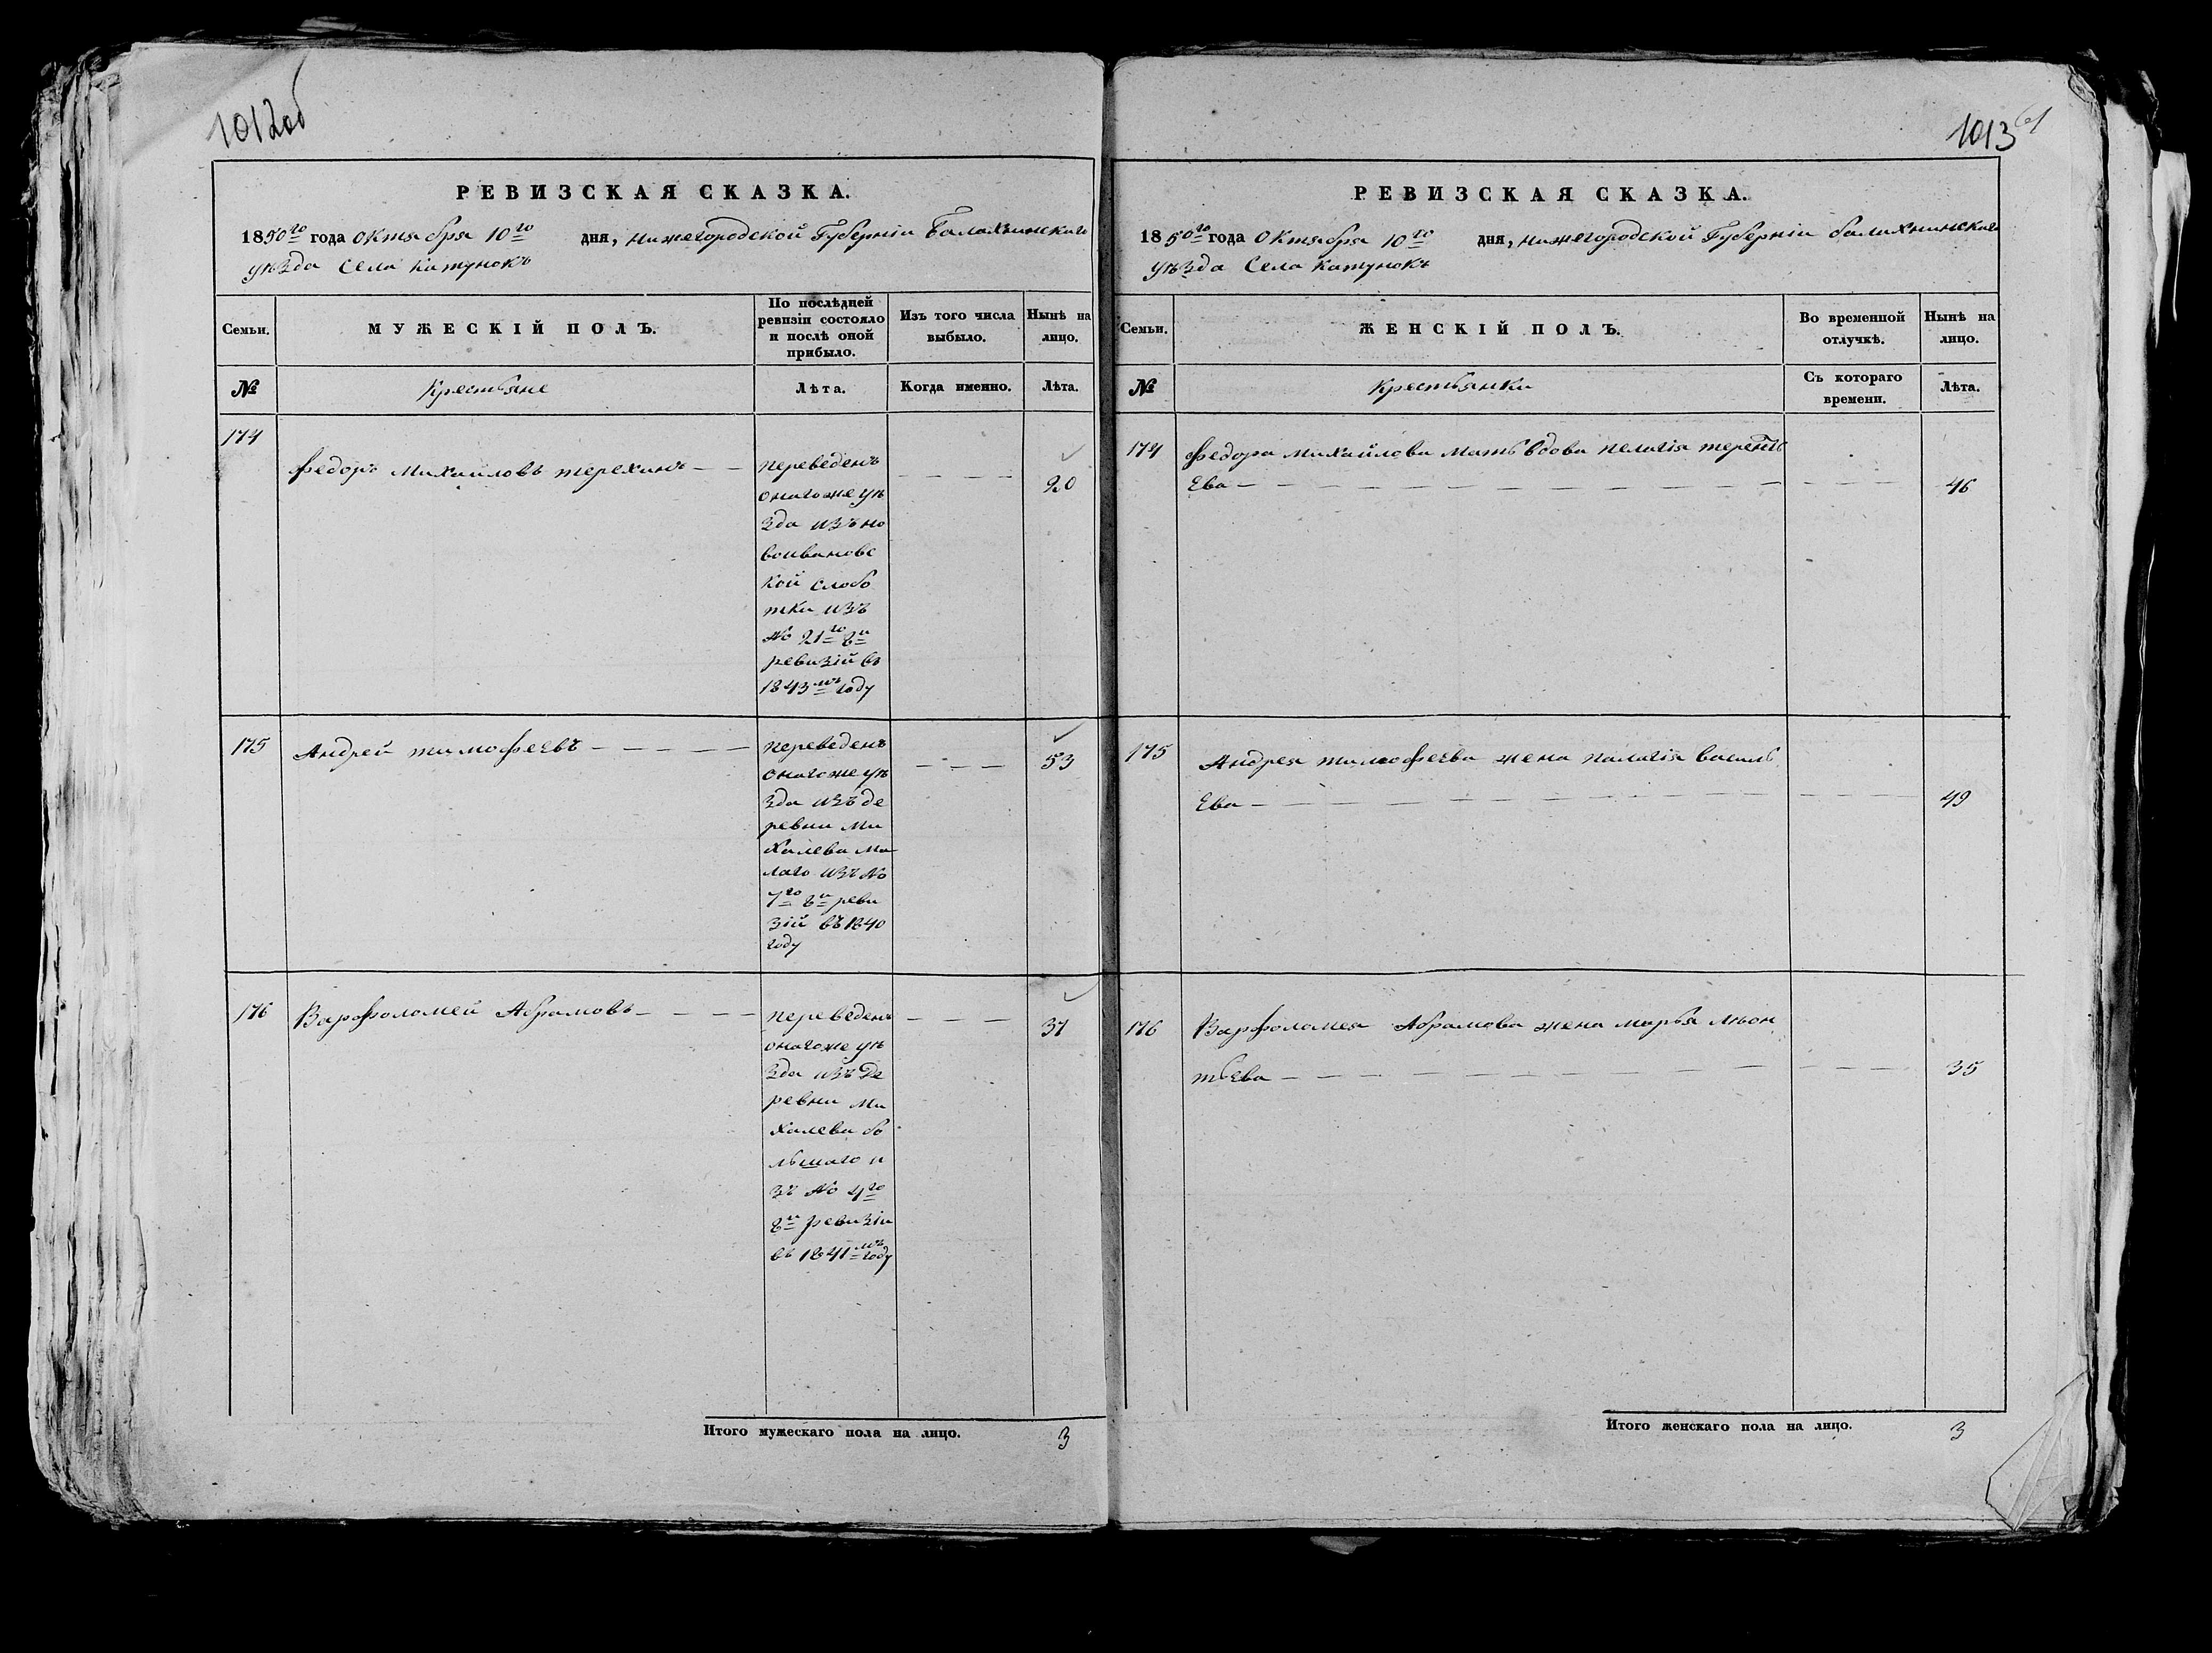 1012об
РЕВИЗСКАЯ СКАЗКА.
1850го года Октября 10го дня, нижегородской Губерніи Балахнинскаго
уѣзда Села катунокъ
Семьи.
МУЖЕСКІЙ ПОЛЪ.
По послѣдней
ревизіи состояло
и послѣ оной
прибыло.
Изъ того числа
выбыло.
Нынѣ на
лицо.
№
Крестьяне
Лѣта.
Когда именно.
Лѣта.
174
Федоръ Михайловъ терехинъ
переведенъ
онагоже уѣ
зда изъ но
воивановс
кой слобо
тки изъ
№ 21го 8й
ревизіи въ
1843мъ году
20
175
Андрей тимофеевъ
переведенъ
онагоже уѣ
зда изъ де
ревни Ми
халева ма
лаго изъ №
7го 8й реви
зіи въ 1840
году
53
176
Варфоломей Абрамовъ
переведенъ
онагоже уѣ
зда изъ де
ревни Ми
халева бо
льшаго и
зъ № 4го
8й ревизіи
въ 1841мъ году
37
Итого мужескаго пола на лицо. 3
1013
61
РЕВИЗСКАЯ СКАЗКА.
1850го года Октября 10го дня, нижегородской Губерніи балахнинскаго
уѣзда Села катунокъ
Семьи.
ЖЕНСКІЙ ПОЛЪ.
Во временной
отлучкѣ.
Нынѣ на
лицо.
№
Крестьянки
Съ котораго
времени.
Лѣта.
174
Федора михайлова мать вдова пелагія терентъ
Ева
46
175
Андрея тимофеева жена палагія василь
Ева
49
176
Варфоломея Абрамова жена марья лѣон
тьева
35
Итого женскаго пола на лицо. 3